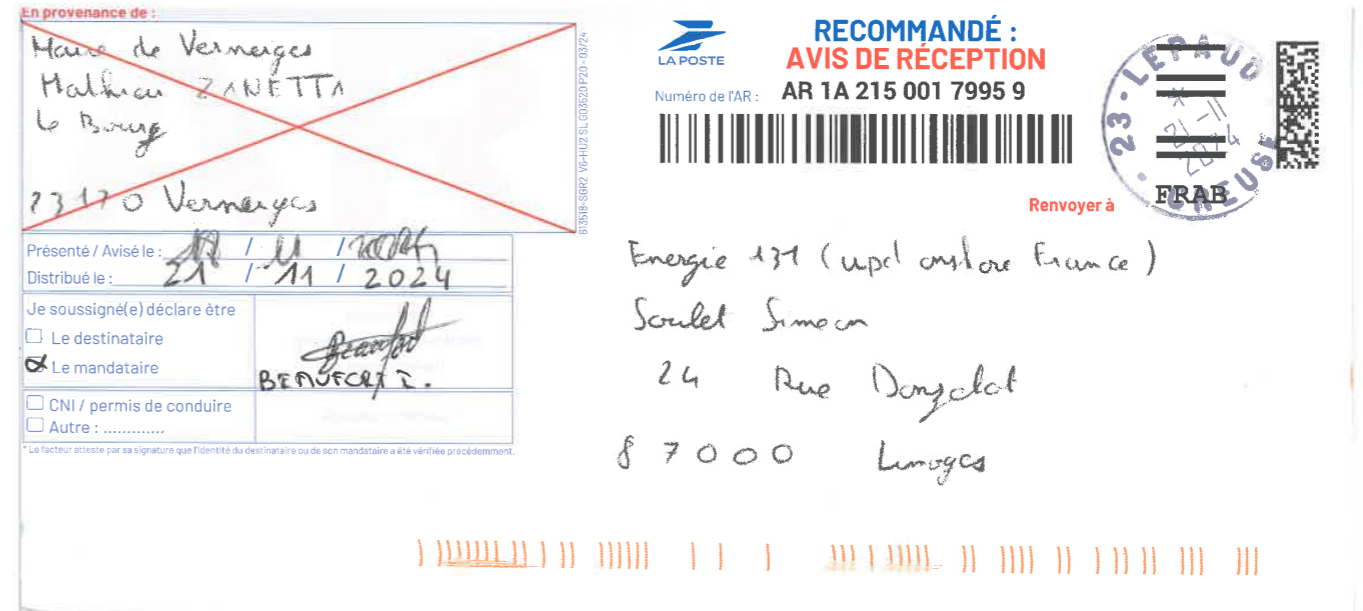 En provenance de :
Maire de Vernerges
Mathieu ZANETTA
Le Bourg
23170 Vernerges
613518-SGR2 V6-HU2 SL G03620 P20 - 03/24
Présenté / Avisé le : / 11 / 2024
Distribué le : 21 / 11 / 2024
Je soussigné(e) déclare être
Le destinataire
Le mandataire
BEAUFORT
CNI / permis de conduire
Autre : .............
* Le facteur atteste par sa signature que l'identité du destinataire ou de son mandataire a été vérifiée précédemment.
LA POSTE
RECOMMANDÉ :
AVIS DE RÉCEPTION
Numéro de l'AR : AR 1A 215 001 7995 9
23 - LEPAUD
21 - 11
2024
CREUSE
FRAB
Renvoyer à
Energie 131 (upd onshore France)
Soulet Simeon
24 Rue Donzelot
87000 Limoges